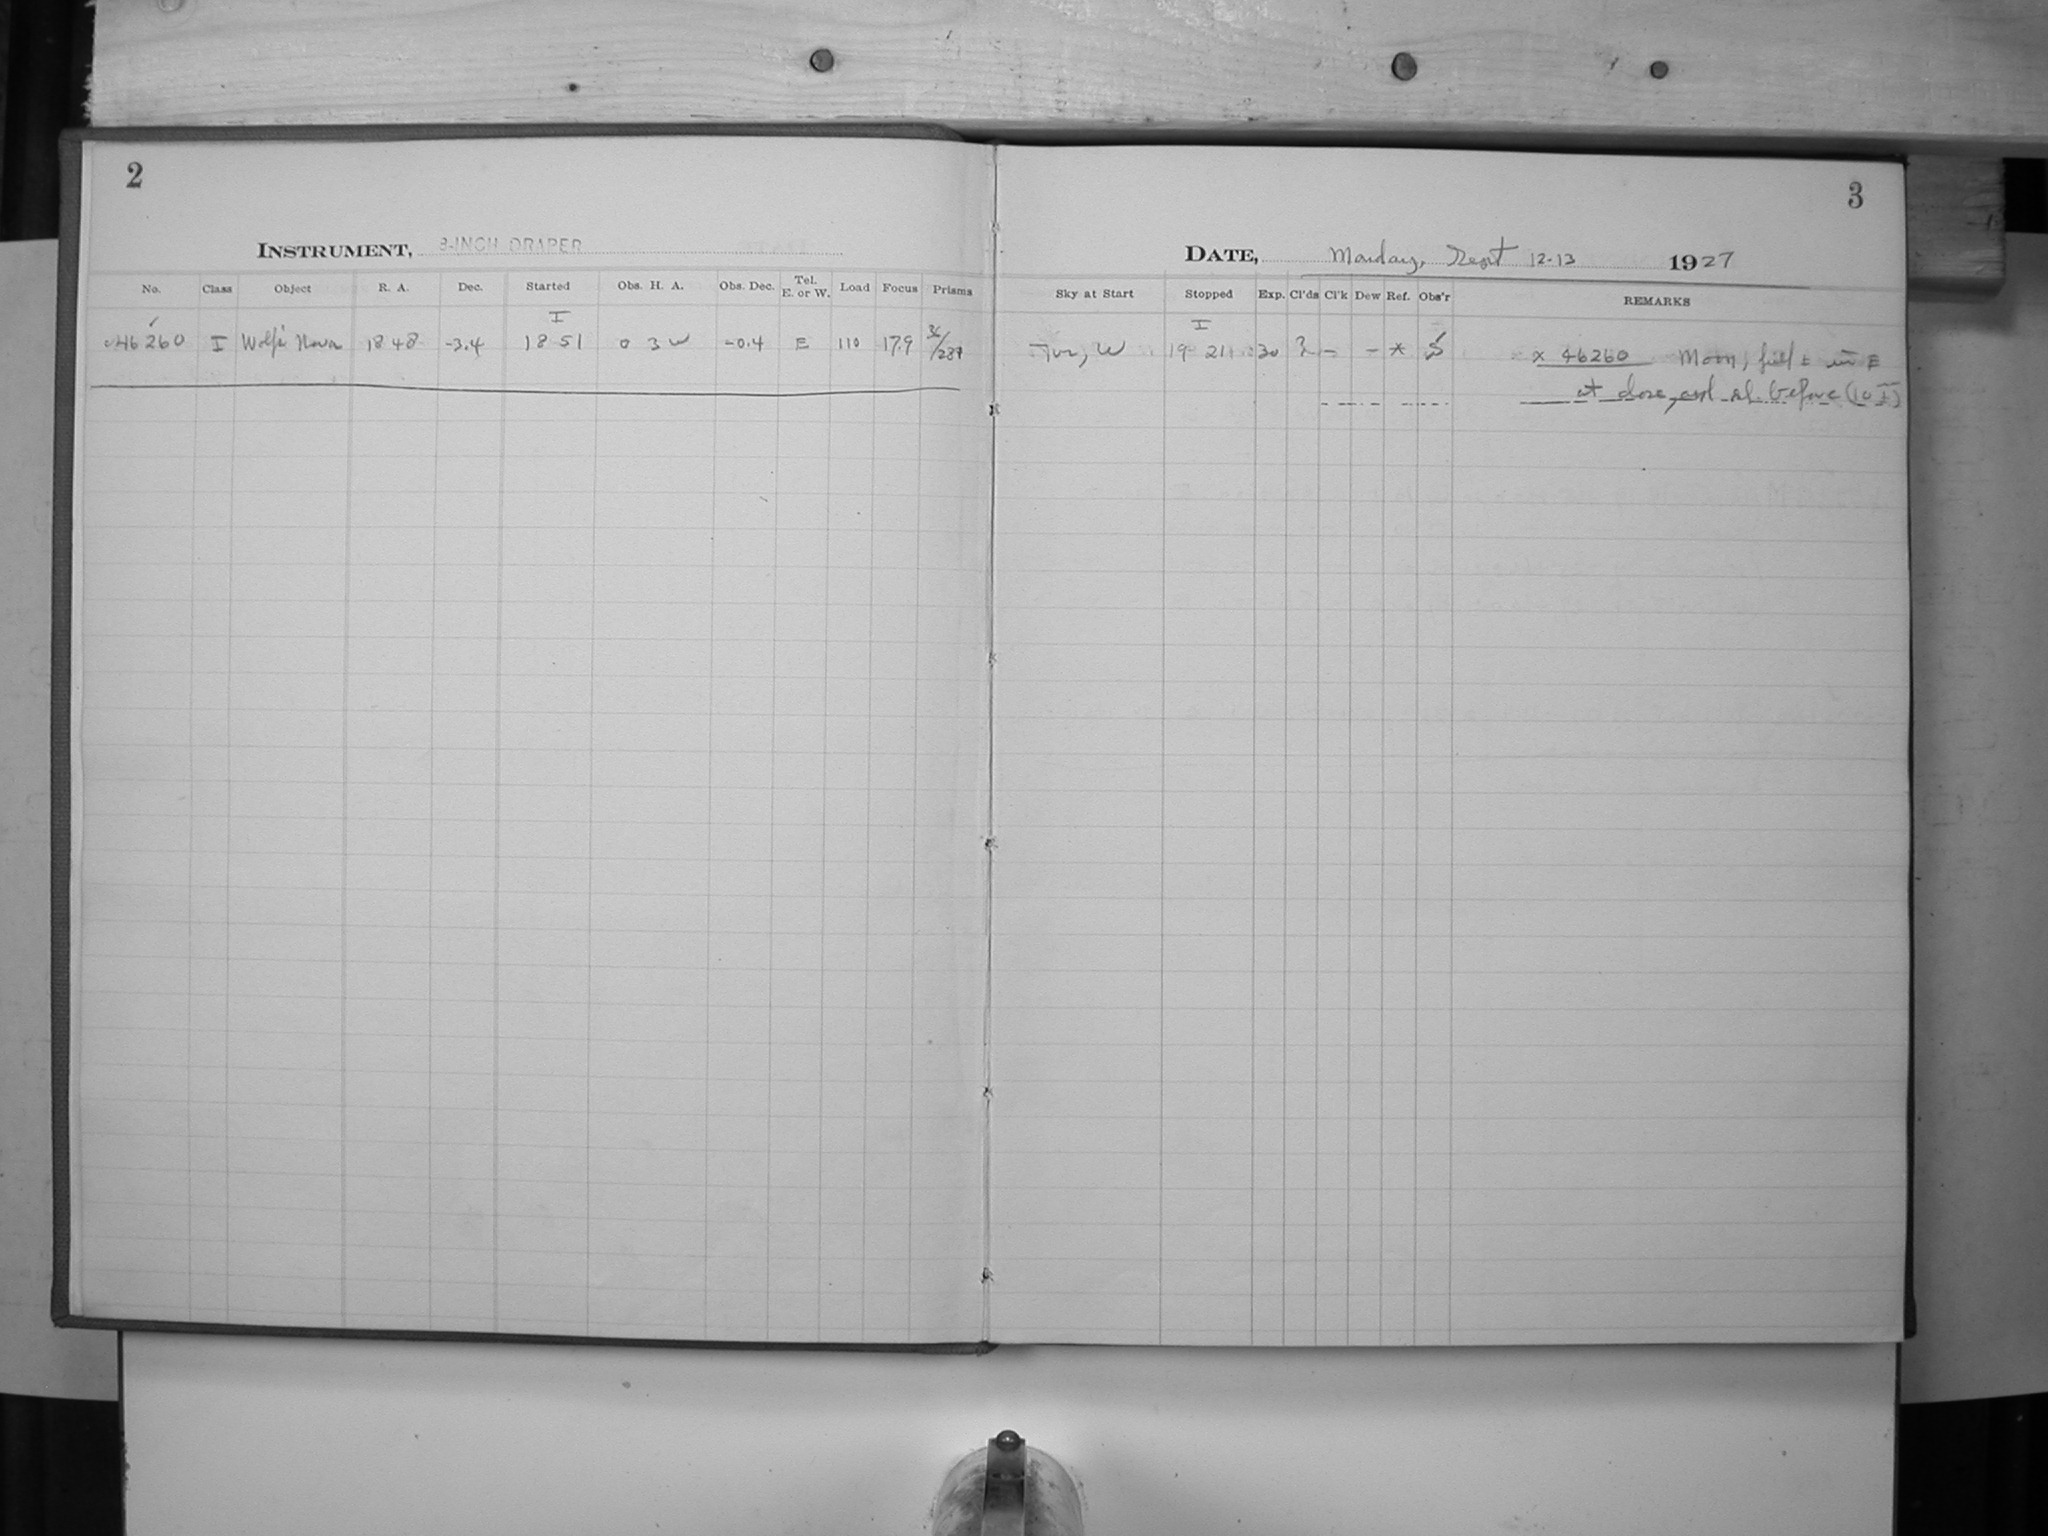 2
INSTRUMENT, 8-INCH DRAPER
No. Class Object R. A. Dec. Started Obs. H. A. Obs. Dec. Tel. E. or W. Load Focus Prisms
I
46260 I Wolf's Nova 18 48 -3.4 18 51 0 3 W -0.4 E 110 17.9
3
DATE, Monday, Sept 12-13 1927
Sky at Start Stopped Exp. Cl'ds Cl'k Dew Ref. Obs'r REMARKS
I
W 19 21 30 ? - - * S x 46260 Moon, full ± in E
at close, and before (10 I)